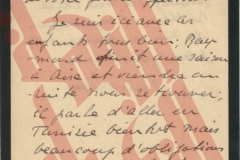 Je suis ici avec les
enfants tous bien; Ray-
mond finit une saison
à Aix et viendra en-
suite nous retrouver;
il parle d'aller en
Tunisie bientôt mais
beaucoup d'obligations